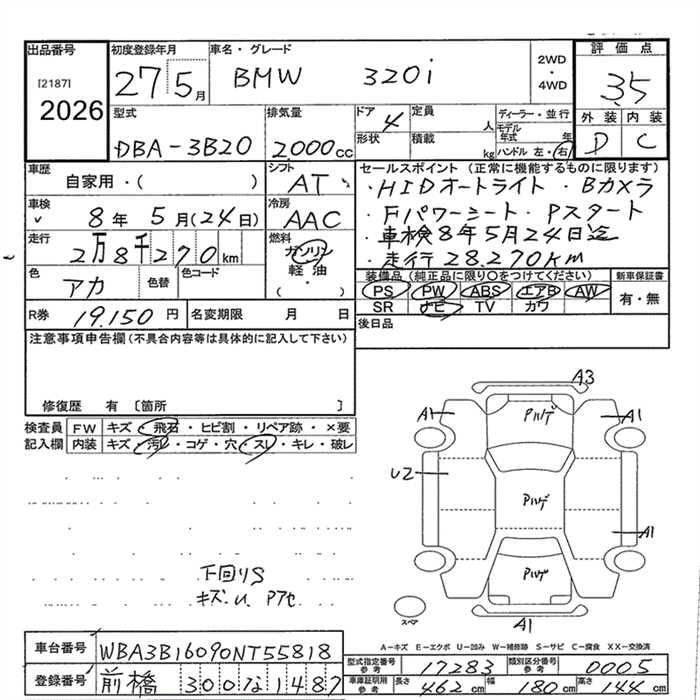 出品番号
[2187]
2026
初度登録年月
27 5月
車名・グレード
BMW 320i
2WD
・
4WD
評価点
3.5
外装 内装
D C
型式
DBA-3B20
排気量
2.000cc
ドア 4
定員 人
形状
積載 kg
ディーラー・並行
モデル年式 年
ハンドル 左・右
車歴
自家用・( )
シフト
AT
セールスポイント (正常に機能するものに限ります)
・HIDオートライト・Bカメラ
・Fパワーシート・Pスタート
・車検8年5月24日迄
・走行28.270km
車検
8年 5月(24日)
冷房
AAC
走行
2万8千270km
燃料
ガソリン
軽・油
( )
色
アカ
色替
色コード
装備品 (純正品に限り○をつけてください)
新車保証書
PS PW ABS エアB AW
SR ナビ TV カワ
有・無
R券 19.150円
名変期限 月 日
後日品
注意事項申告欄 (不具合内容等は具体的に記入して下さい)
修復歴 有 〔箇所 〕
検査員 FW キズ・飛石・ヒビ割・リペア跡・×要
記入欄 内装 キズ・汚レ・コゲ・穴・スレ・キレ・破レ
A3
A1 Pハゲ A1
U2
Pハゲ
A1
Pハゲ
スペア
A1
下回りS
キズ U. Pアセ
A-キズ E-エクボ U-凹み W-補修跡 S-サビ C-腐食 XX-交換済
車台番号 WBA3B16090NT55818
登録番号 前橋 300な1487
型式指定番号 参考 17283
類別区分番号 参考 0005
車庫証明用 参考 長さ 462cm 幅 180cm 高さ 144cm